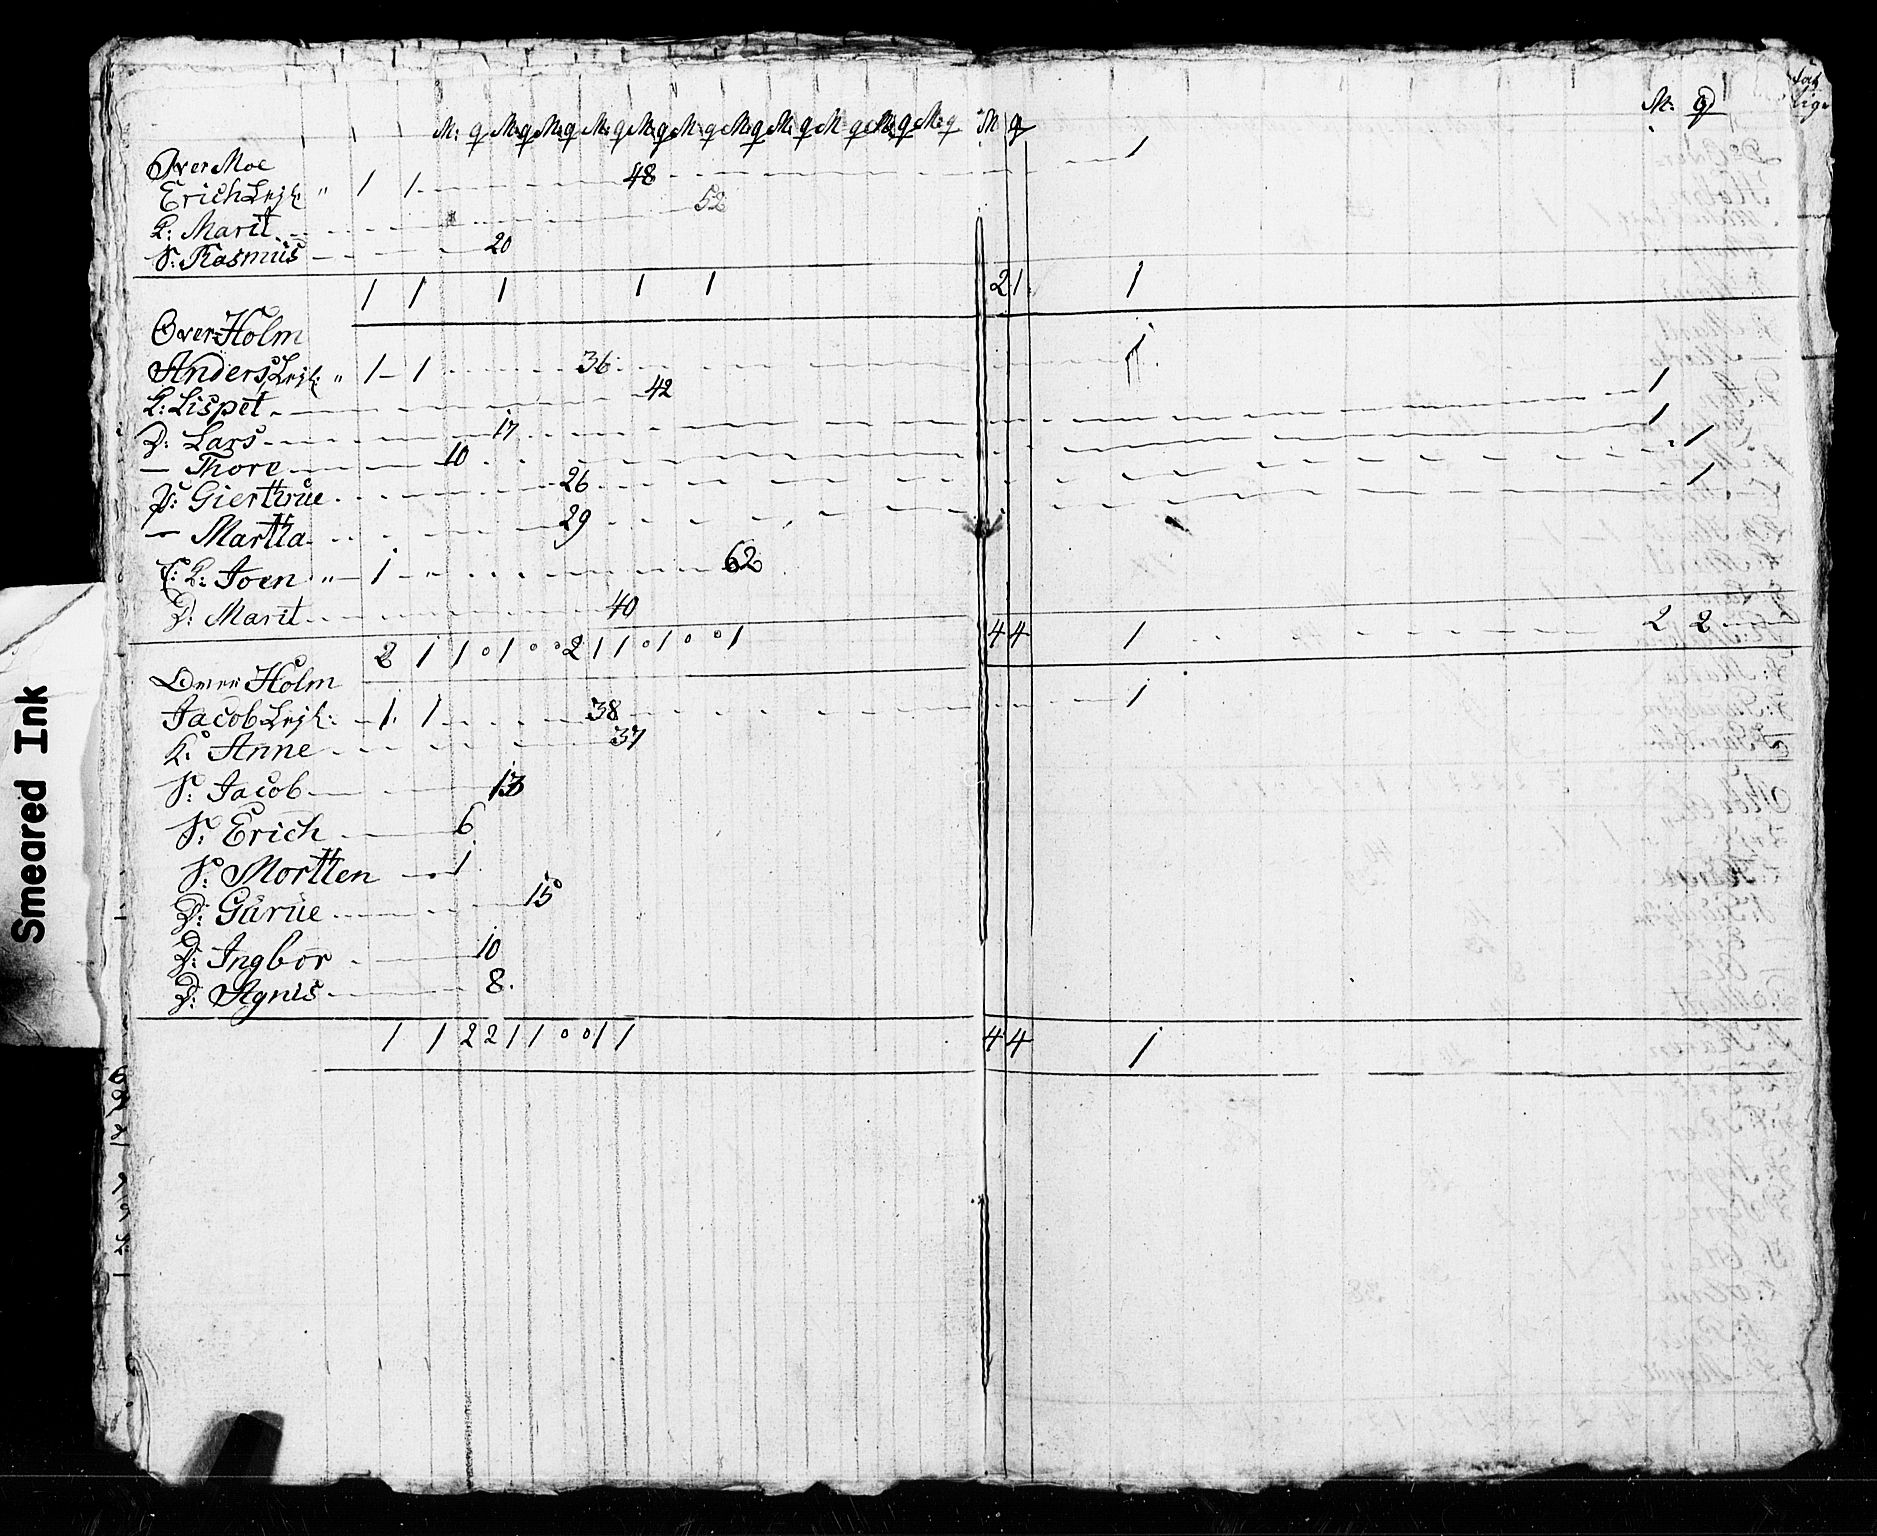 M: q M: q M: q M: q M: q M q M: q M: q M q M: q M: q M q M: q
Over Moe
Erich Lejl: " 1 1 48 1
K: Marit 52
S: Rasmus 20
1 1 1 1 1 2 1 1
Over Holm
Anders Lejl: " 1 1 36 1
K: Lispet 42
D: Lars 17 1
— Thore 10 1
P: Giertrue 26 1
— Martta 29 1
K: Joen " 1 62
D: Marit 40
2 1 1 0 1 0 0 2 1 1 0 1 0 0 1 4 4 1 2 2
Over Holm
Jacob Lejl: 1 1 38 1
K: Anne 37
S: Jacob 13
S: Erich 6
S: Mortten 1
D: Gurue 15
D: Ingbor 10
D: Agnis 8
1 1 2 2 1 1 0 0 1 1 4 4 1
Smeared Ink